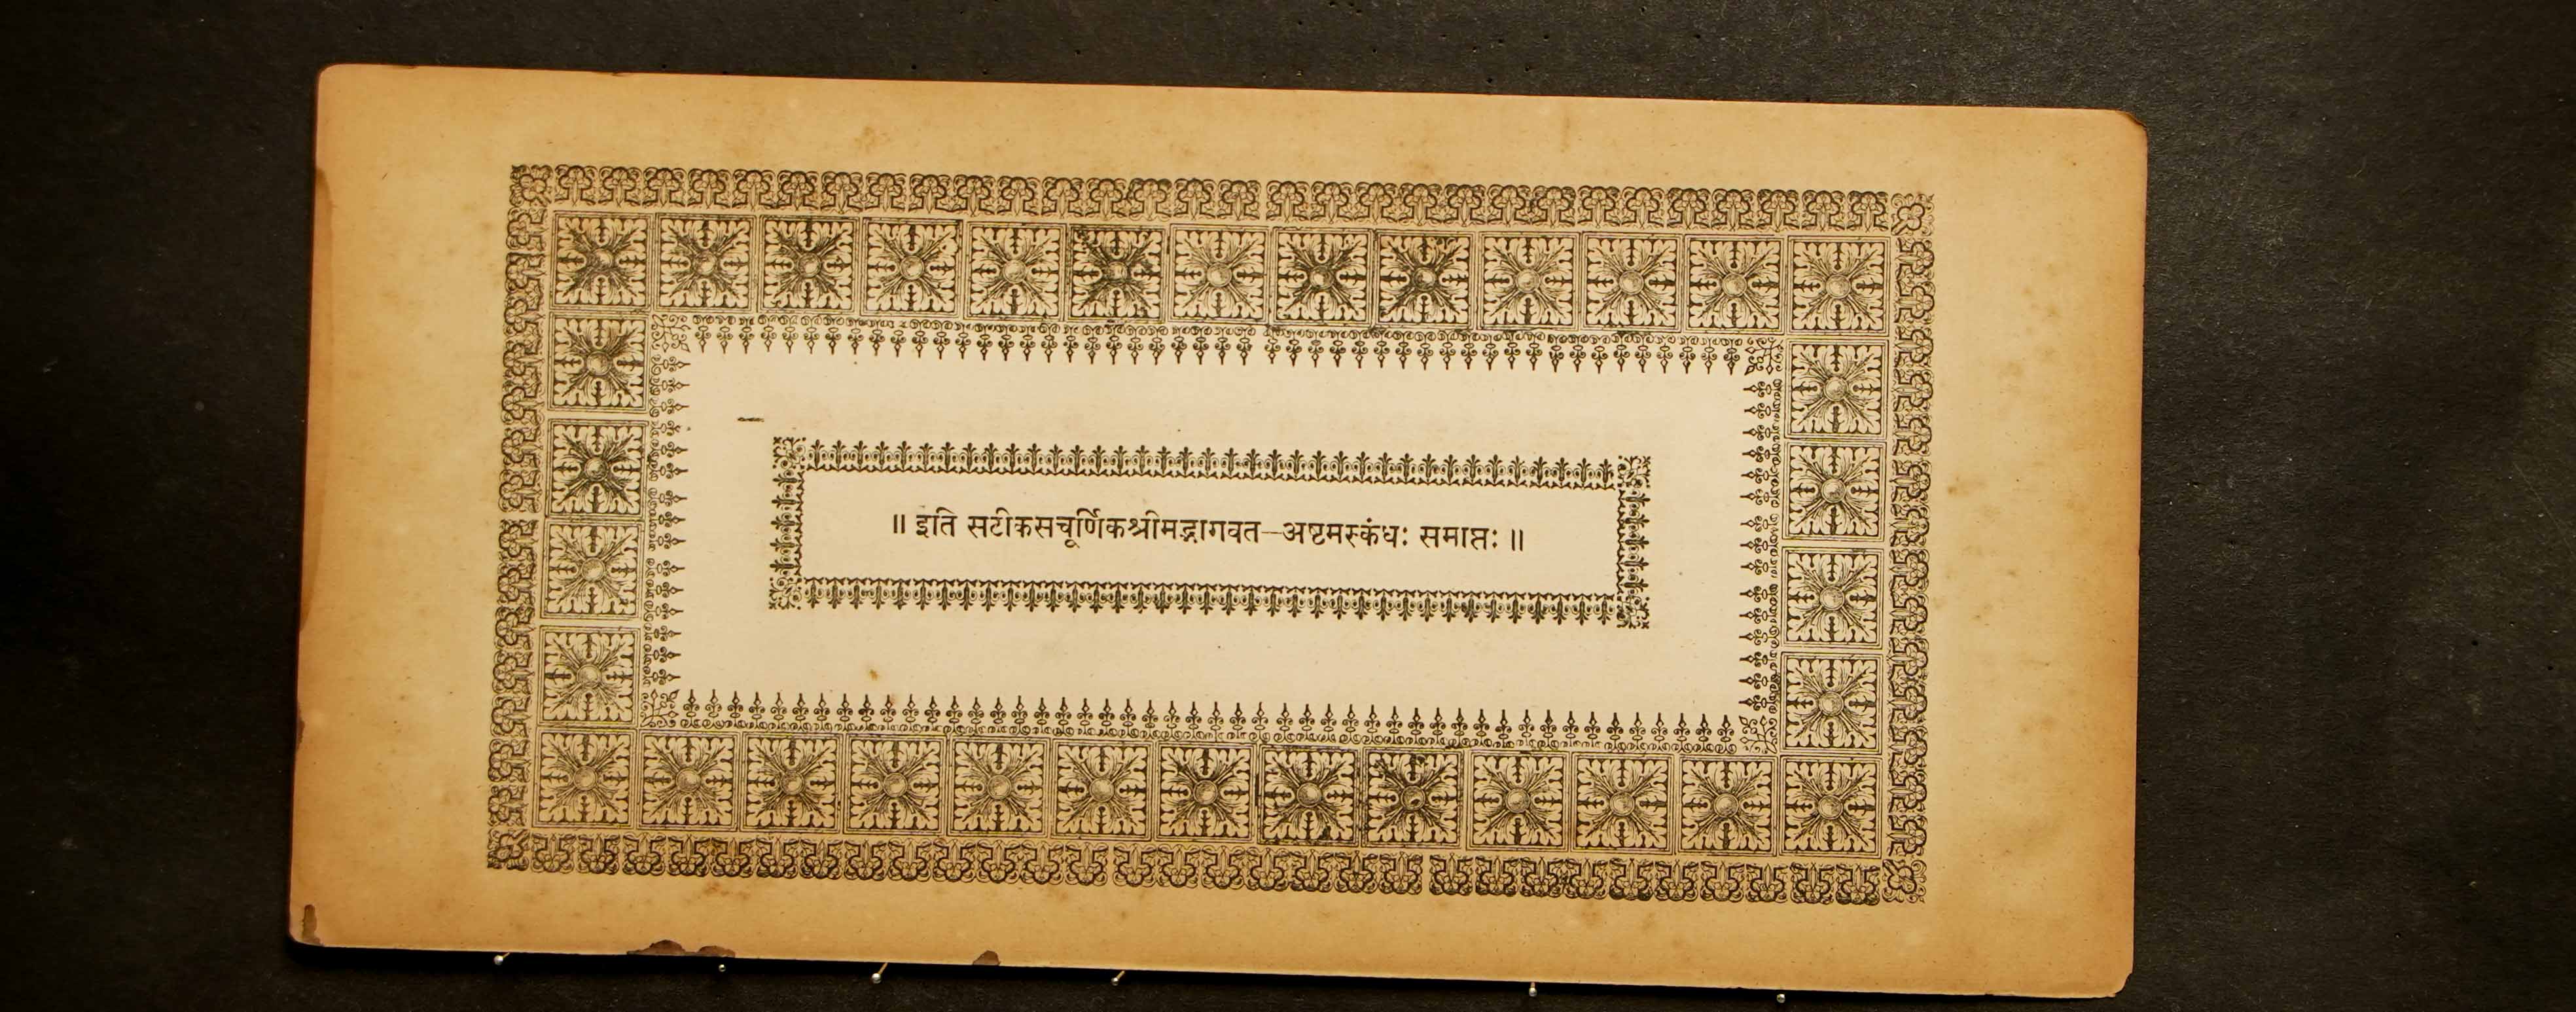 ॥ इति सटीकसचूर्णिकश्रीमद्भागवत—अष्टमस्कंधः समाप्तः ॥